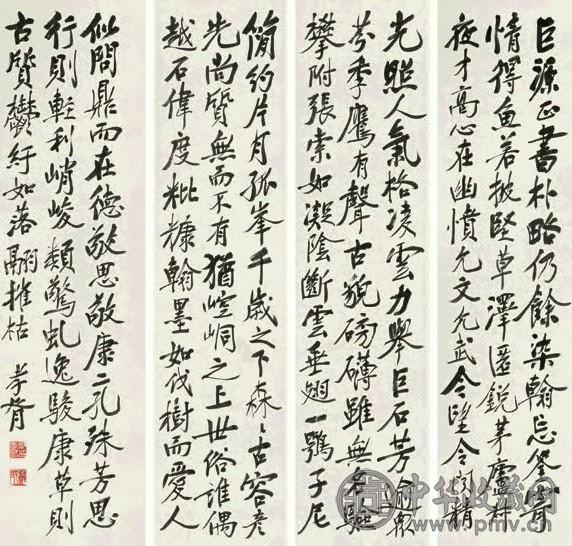 巨源正書朴略仍餘染翰忘筌寄
情得魚若披堅草澤匿銳茅廬叔
夜才高心在幽憤允文允武令望令問精
光照人氣格凌雲力舉巨石芳愈眾
芬季鷹有聲古貌磅礴雖無名驅
攀附張索如凝陰斷雲垂翅一鶚子尼
簡約片月孤峯千歲之下森森古容彥
先尚質無而不有猶崆峒之上世俗誰偶
越石偉度粃糠翰墨如伐樹而愛人
似問鼎而在德敬思敬康二孔殊芳思
行則輕利峭峻類驚虬逸駿康草則
古質鬱紆如落翮摧枯 孝胥
中华收藏网
www.pmv.cn